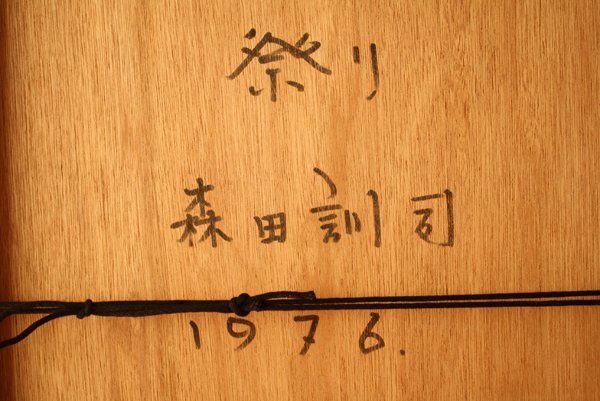 祭り
森田訓司
1976.